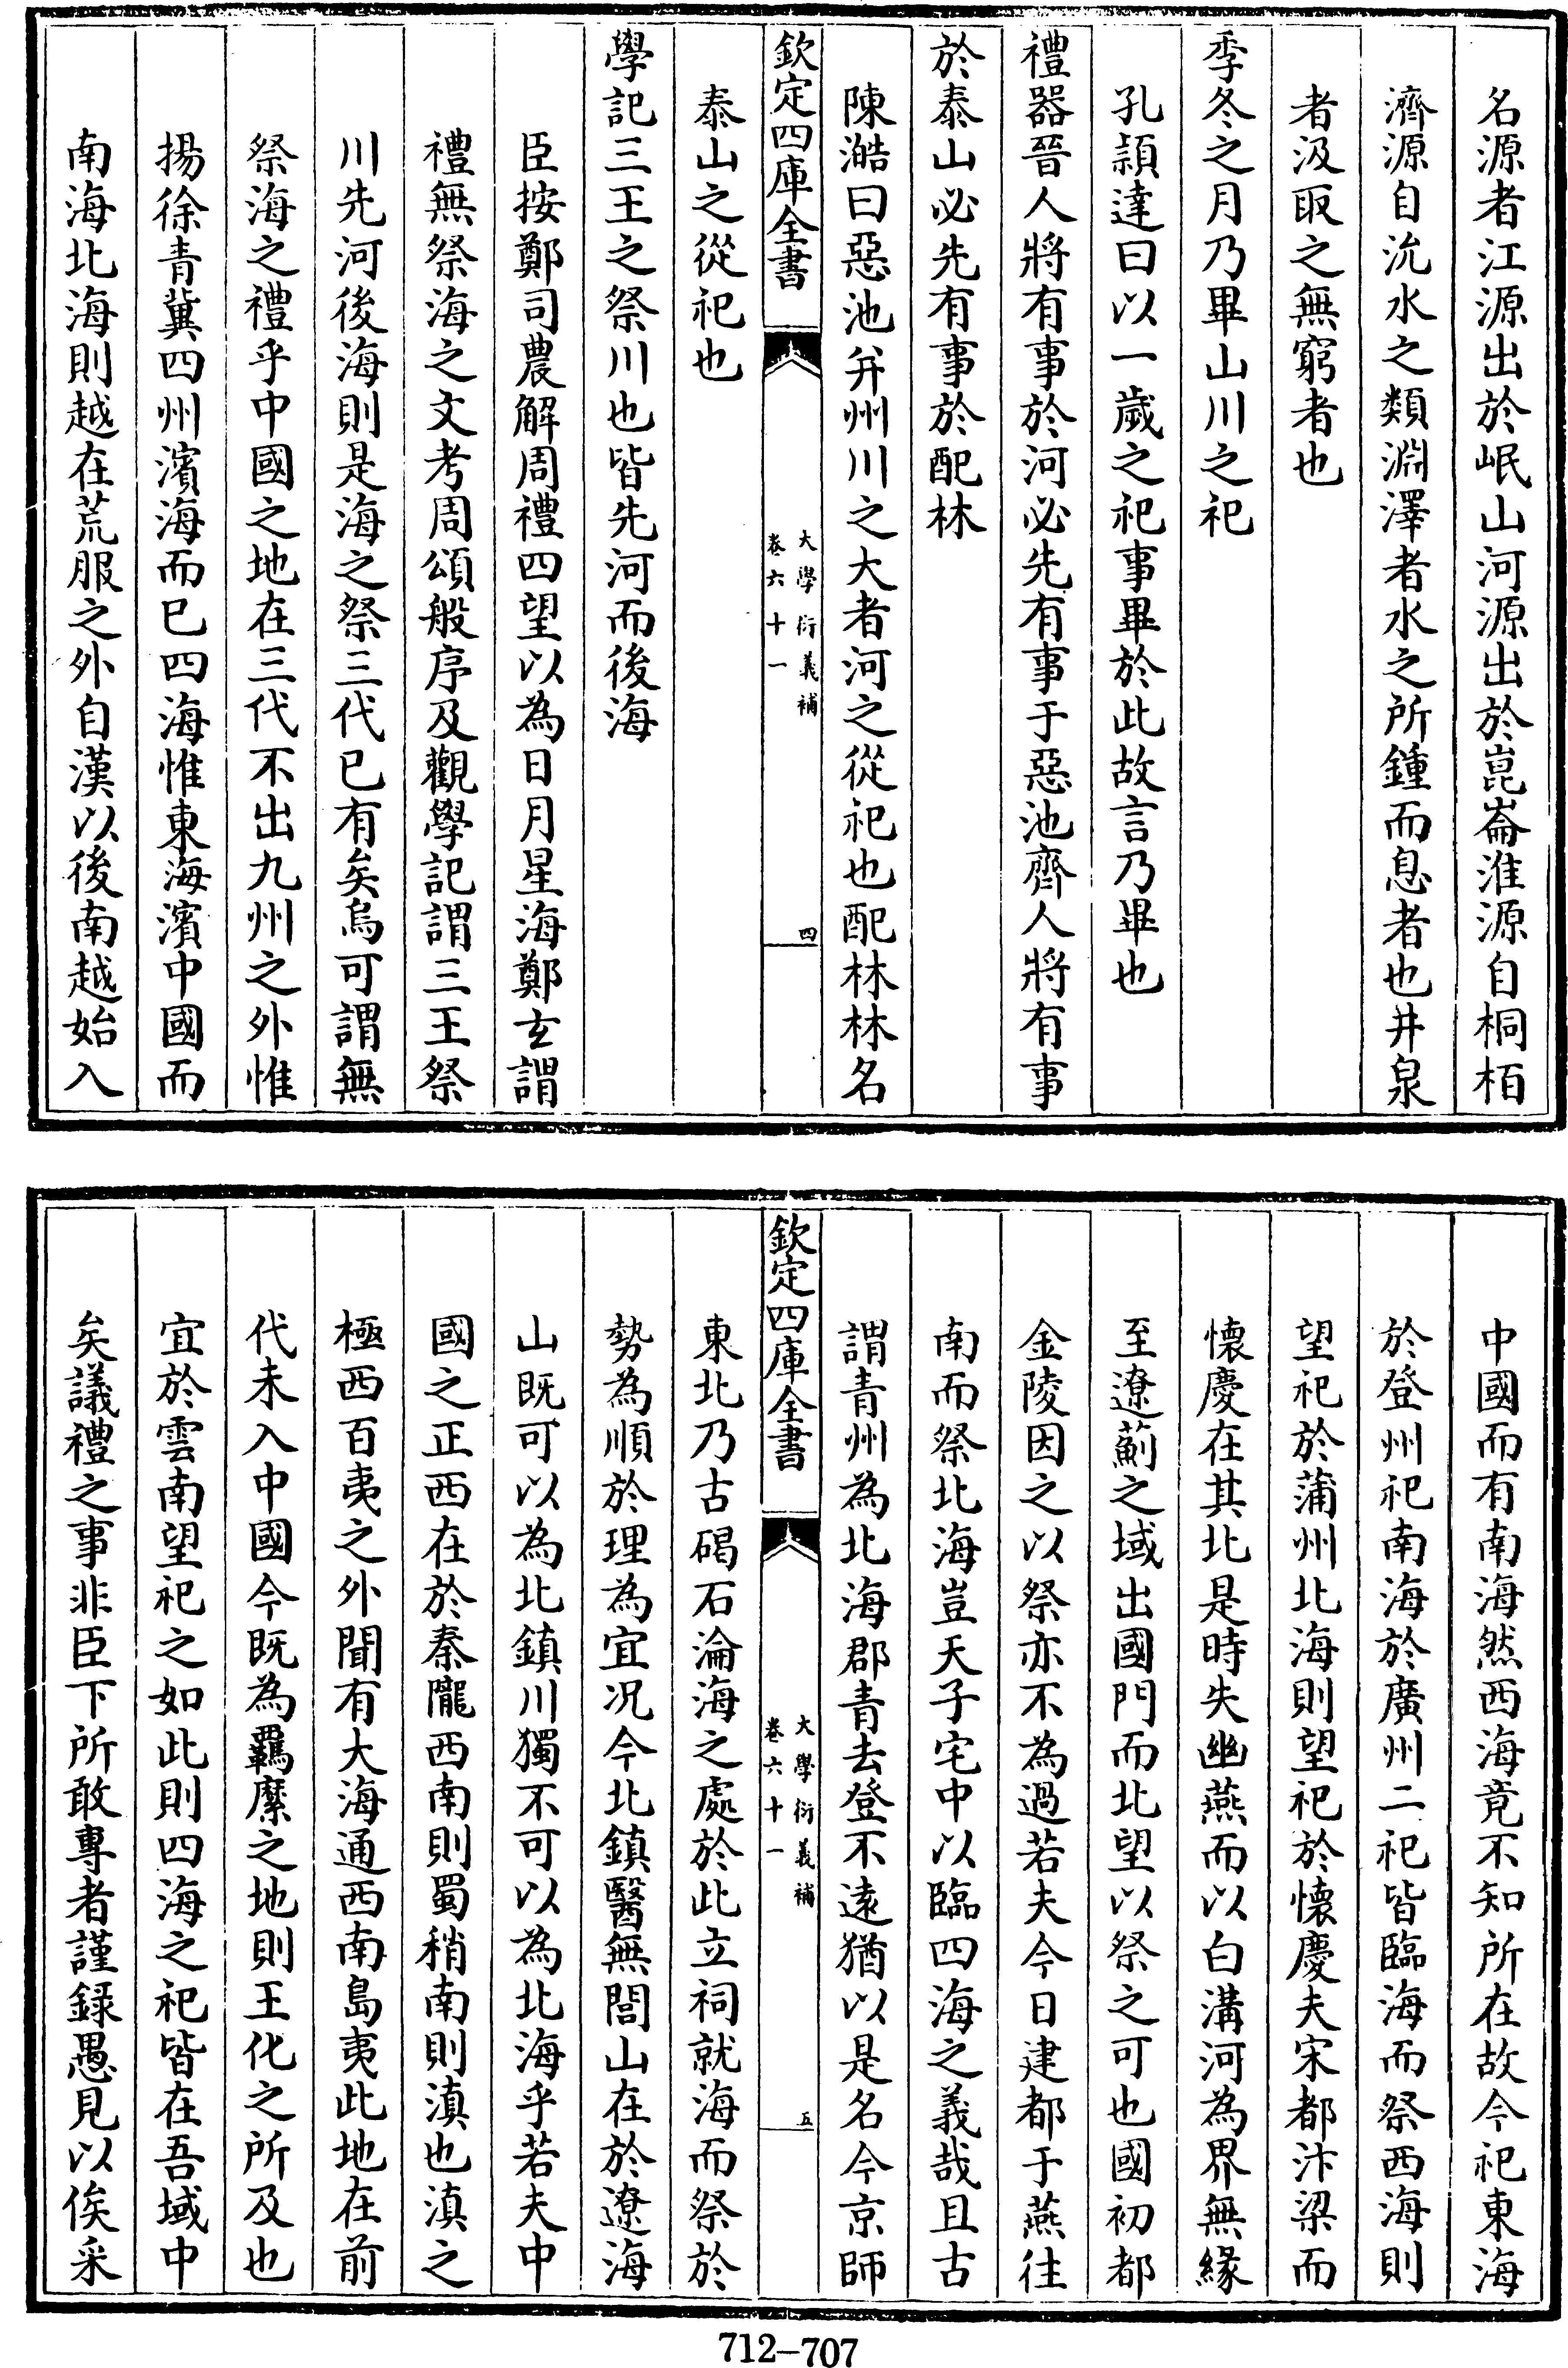 名源者江源出於岷山河源出於崑崙淮源自桐栢
濟源自沇水之類淵澤者水之所鍾而息者也井泉
者汲取之無窮者也
季冬之月乃畢山川之祀
孔頴達曰以一歲之祀事畢於此故言乃畢也
禮器晉人將有事於河必先有事于惡池齊人將有事
於泰山必先有事於配林
陳澔曰惡池并州川之大者河之從祀也配林林名
欽定四庫全書
大學衍義補
卷六十一
四
泰山之從祀也
學記三王之祭川也皆先河而後海
臣按鄭司農解周禮四望以為日月星海鄭玄謂
禮無祭海之文考周頌般序及觀學記謂三王祭
川先河後海則是海之祭三代已有矣烏可謂無
祭海之禮乎中國之地在三代不出九州之外惟
揚徐青冀四州濱海而已四海惟東海濱中國而
南海北海則越在荒服之外自漢以後南越始入
中國而有南海然西海竟不知所在故今祀東海
於登州祀南海於廣州二祀皆臨海而祭西海則
望祀於蒲州北海則望祀於懷慶夫宋都汴梁而
懷慶在其北是時失幽燕而以白溝河為界無緣
至遼薊之域出國門而北望以祭之可也國初都
金陵因之以祭亦不為過若夫今日建都于燕往
南而祭北海豈天子宅中以臨四海之義哉且古
謂青州為北海郡青去登不遠猶以是名今京師
欽定四庫全書
大學衍義補
卷六十一
五
東北乃古碣石淪海之處於此立祠就海而祭於
勢為順於理為宜况今北鎮醫無閭山在於遼海
山既可以為北鎮川獨不可以為北海乎若夫中
國之正西在於秦隴西南則蜀稍南則滇也滇之
極西百夷之外聞有大海通西南島夷此地在前
代未入中國今既為羈縻之地則王化之所及也
宜於雲南望祀之如此則四海之祀皆在吾域中
矣議禮之事非臣下所敢專者謹録愚見以俟采
712-707